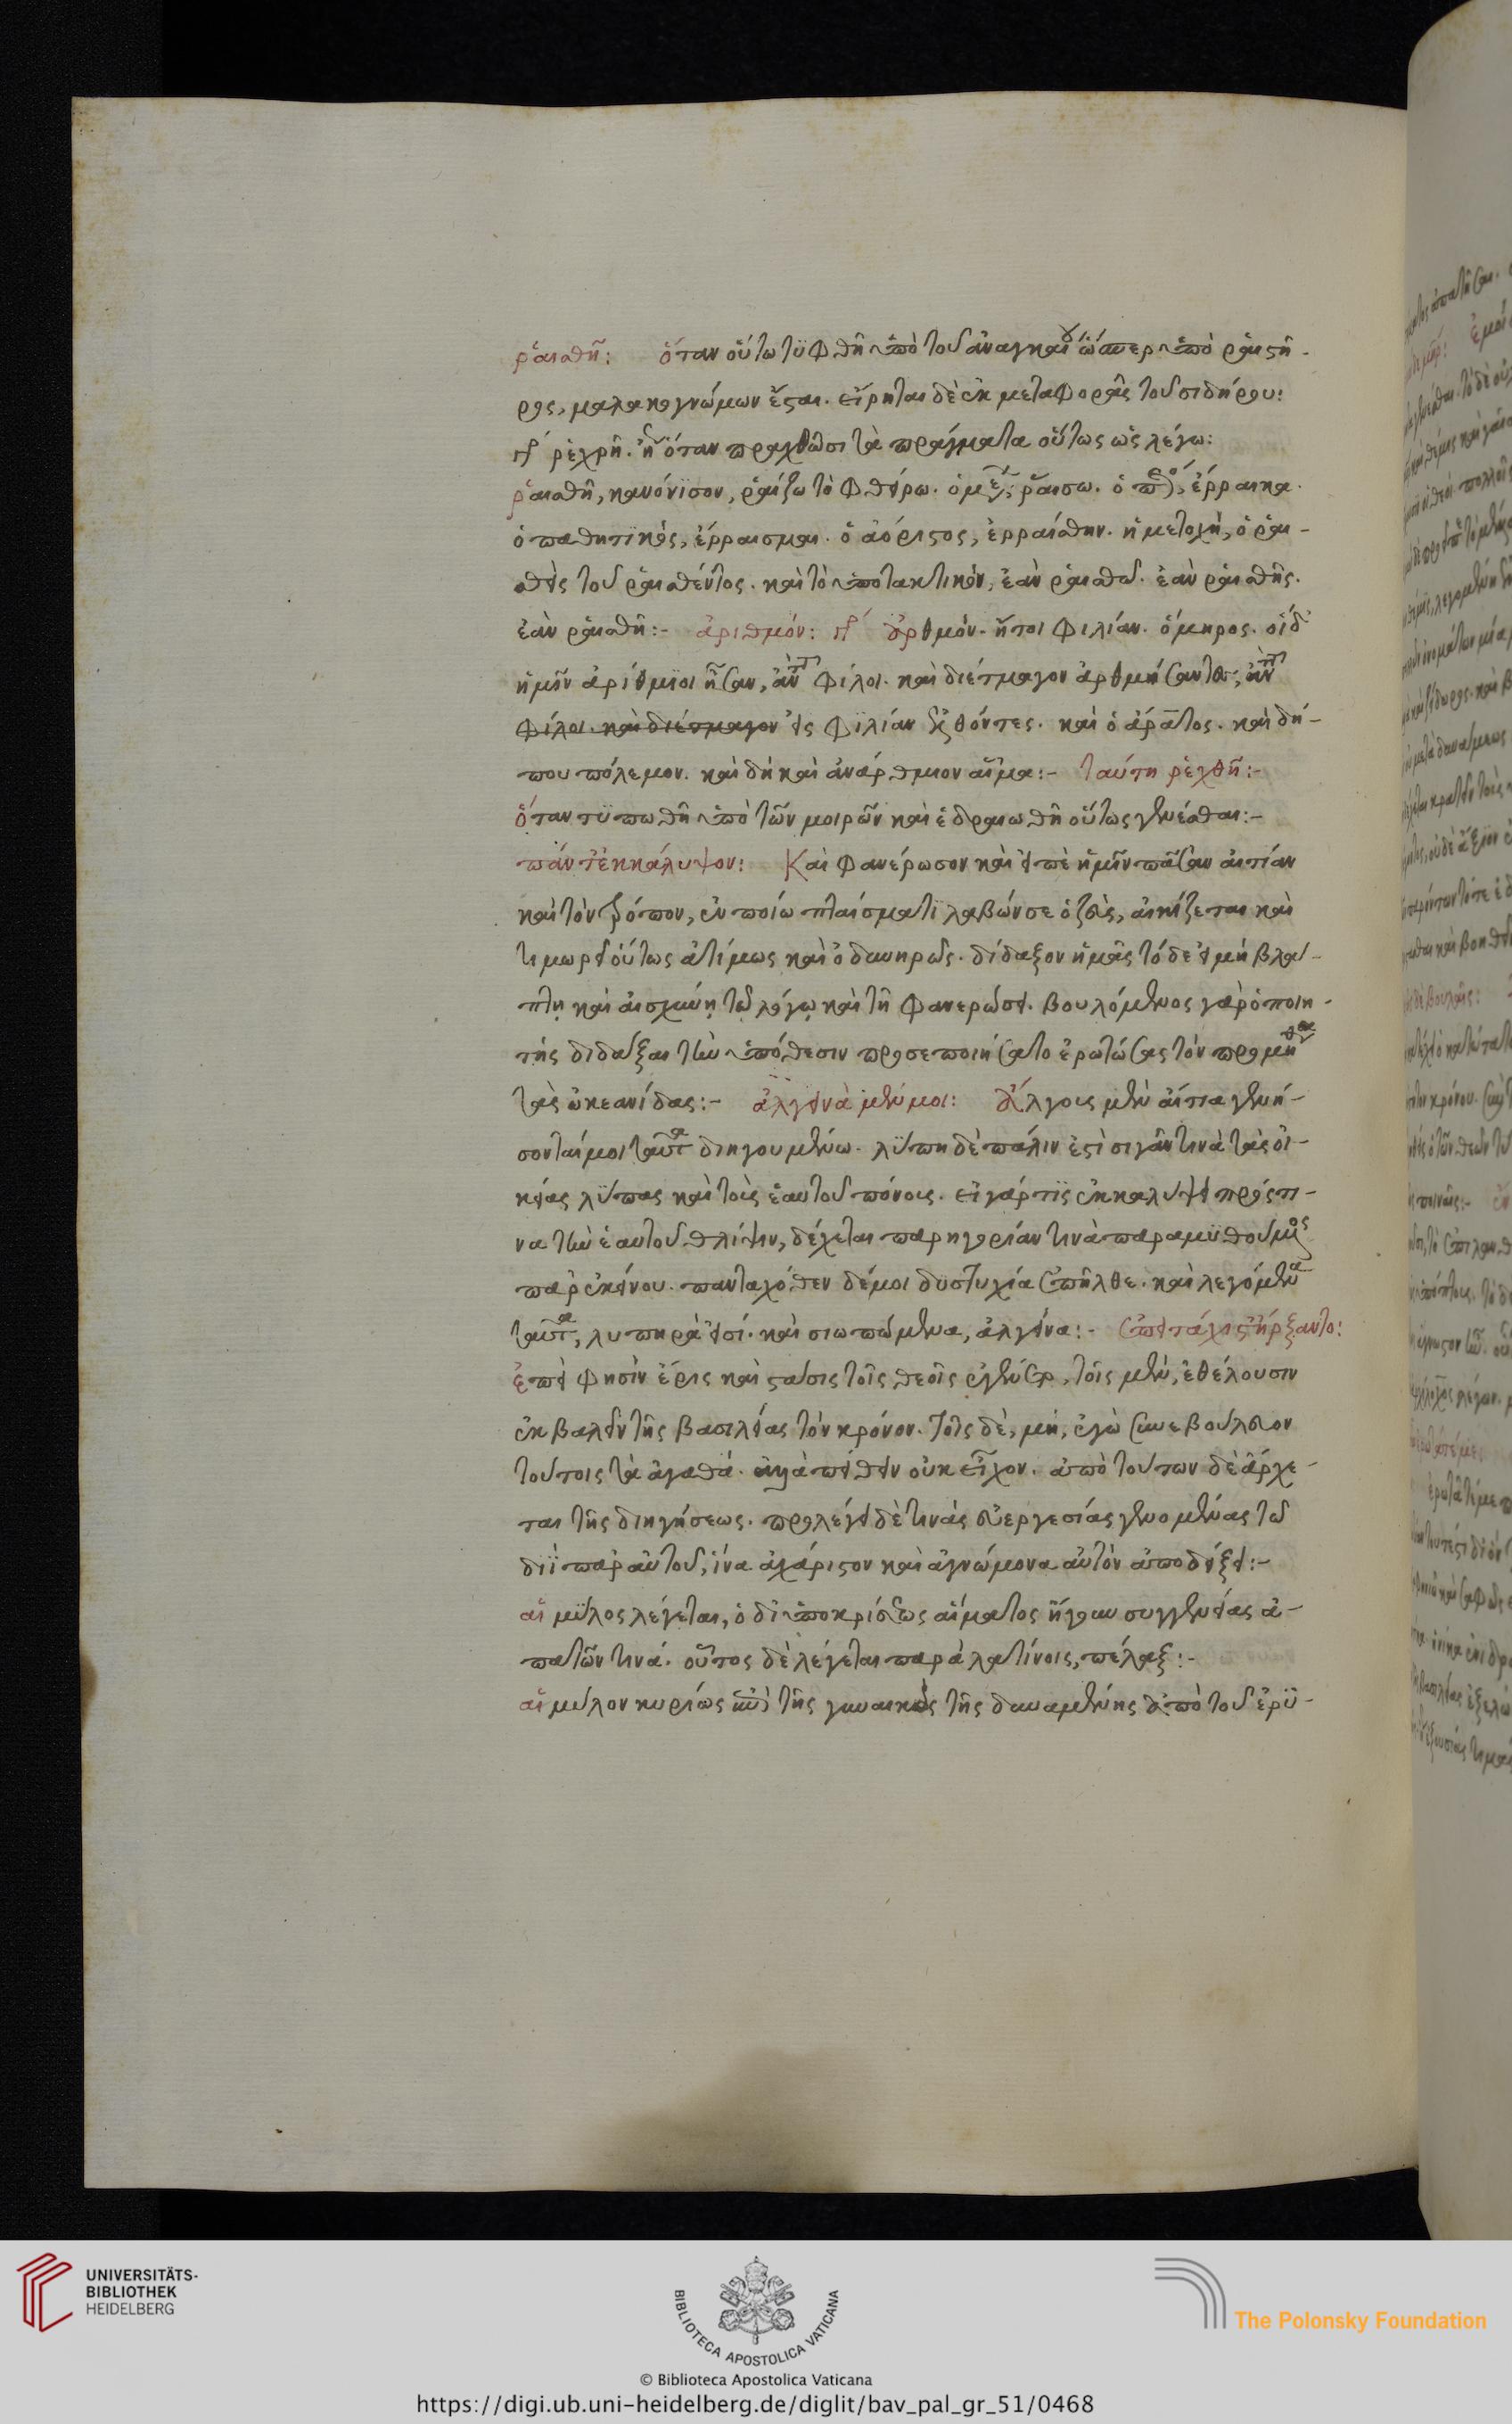 ῥαισθῆ: ὅταν οὕτω τυφθῆ ὑπὸ τοῦ ἀναγκαίου ὥσπερ ὑπὸ ῥαιστῆ-
ρος, μαλακογνώμων ἔσται. εἴρηται δὲ ἐκ μεταφορᾶς τοῦ σιδήρου:
ῥεχθῆ. ἢ ὅταν πραχθῶσι τὰ πράγματα οὕτως ὡς λέγω:
ῥαισθῆ, κανόνισον, ῥαίζω τὸ φθείρω. ὁ μέλλων, ῥαίσω. ὁ παρακείμενος, ἔρραικα.
ὁ παθητικὸς, ἔρραισμαι. ὁ ἀόριστος, ἐρραίσθην. ἡ μετοχὴ, ὁ ῥαι-
σθεὶς τοῦ ῥαισθέντος. καὶ τὸ ὑποτακτικὸν, ἐὰν ῥαισθῶ. ἐὰν ῥαισθῆς.
ἐὰν ῥαισθῆ:- ἀριθμόν: ἀρθμόν. ἤτοι φιλίαν. ὅμηρος. οἱ δ'
ἡμῖν ἀρίθμιοι ἦσαν, ἀντὶ τοῦ φίλοι. καὶ διέτμαγον ἀρθμήσαντες, ἀντὶ τοῦ
φίλοι. καὶ διέτμαγον εἰς φιλίαν ἐλθόντες. καὶ ὁ ἄρατος. καὶ δή-
που πόλεμον. καὶ δὴ καὶ ἀνάρθμιον αἷμα:- ταύτη ῥεχθῆ:-
ὅταν τυπωθῆ ὑπὸ τῶν μοιρῶν καὶ ἑδραιωθῆ οὕτως γενέσθαι:-
πάντ' ἐκκάλυψον: Καὶ φανέρωσον καὶ εἰπὲ ἡμῖν πᾶσαν αἰτίαν
καὶ τὸν τρόπον, ἐν ποίω πταίσματι λαβών σε ὁ ζεὺς, αἰκίζεται καὶ
τιμωρεῖ οὕτως ἀτίμως καὶ ὀδυνηρῶς. δίδαξον ἡμᾶς τόδε εἰ μὴ βλάπ-
τη καὶ αἰσχύνῃ τῷ λόγῳ καὶ τῆ φανερώσει. βουλόμενος γὰρ ὁ ποιη-
τὴς διδάξαι τὴν ὑπόθεσιν προσεποιήσατο ἐρωτώσας τὸν προμηθέα
τὰς ὠκεανίδας:- ἀλγεινὰ μέν μοι: ἄλγους μὲν αἴτια γενή-
σονταί μοι ταῦτα διηγουμένω. λύπη δὲ πάλιν ἐστὶ σιγᾶν τινὰ τὰς οἰ-
κείας λύπας καὶ τοὺς ἑαυτοῦ πόνους. εἰ γάρ τις ἐκκαλύψει πρός τι-
να τὴν ἑαυτοῦ θλίψιν, δέχεται παρηγορίαν τινὰ παραμυθούμενος
παρ' ἐκείνου. πανταχόθεν δέ μοι δυστυχία ἐπῆλθε. καὶ λεγόμενα
ταῦτα, λυπηρὰ εἰσί. καὶ σιωπώμενα, ἀλγεινά:- ἐπεὶ τάχιστ' ἤρξαντο:
ἐπεὶ φησὶν ἔρις καὶ στάσις τοῖς θεοῖς ἐγένετο, τοῖς μὲν, ἐθέλουσιν
ἐκβαλεῖν τῆς βασιλείας τὸν κρόνον. τοῖς δὲ, μὴ, ἐγὼ συνεβούλευον
τούτοις τὰ ἀγαθά. ἀλλὰ πείθειν οὐκ εἶχον. ἀπὸ τούτων δὲ ἄρχε-
ται τῆς διηγήσεως. προλέγει δὲ τινὰς εὐεργεσίας γενομένας τῶ
διῒ παρ' αὐτοῦ, ἵνα ἀχάριστον καὶ ἀγνώμονα αὐτὸν ἀποδείξει:-
αἱμύλος λέγεται, ὁ δι' ὑποκρίσεως αἵματος ἤγουν συγγενείας ἀ-
πατῶν τινά. οὗτος δὲ λέγεται παρὰ λατίνοις, πέλαξ:-
αἱμύλον κυρίως ἐπὶ τῆς γυναικὸς τῆς δυναμένης ἀπὸ τοῦ ἐρυ-
UNIVERSITÄTS-
BIBLIOTHEK
HEIDELBERG
BIBLIOTECA APOSTOLICA VATICANA
The Polonsky Foundation
© Biblioteca Apostolica Vaticana
https://digi.ub.uni-heidelberg.de/diglit/bav_pal_gr_51/0468